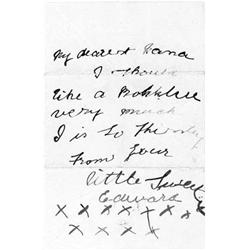 My dearest Nana
I should
like a Bokhlue
very much
I is so Thirsty
From your
little Sweet
Edward
x x x x x x x
x x x x x